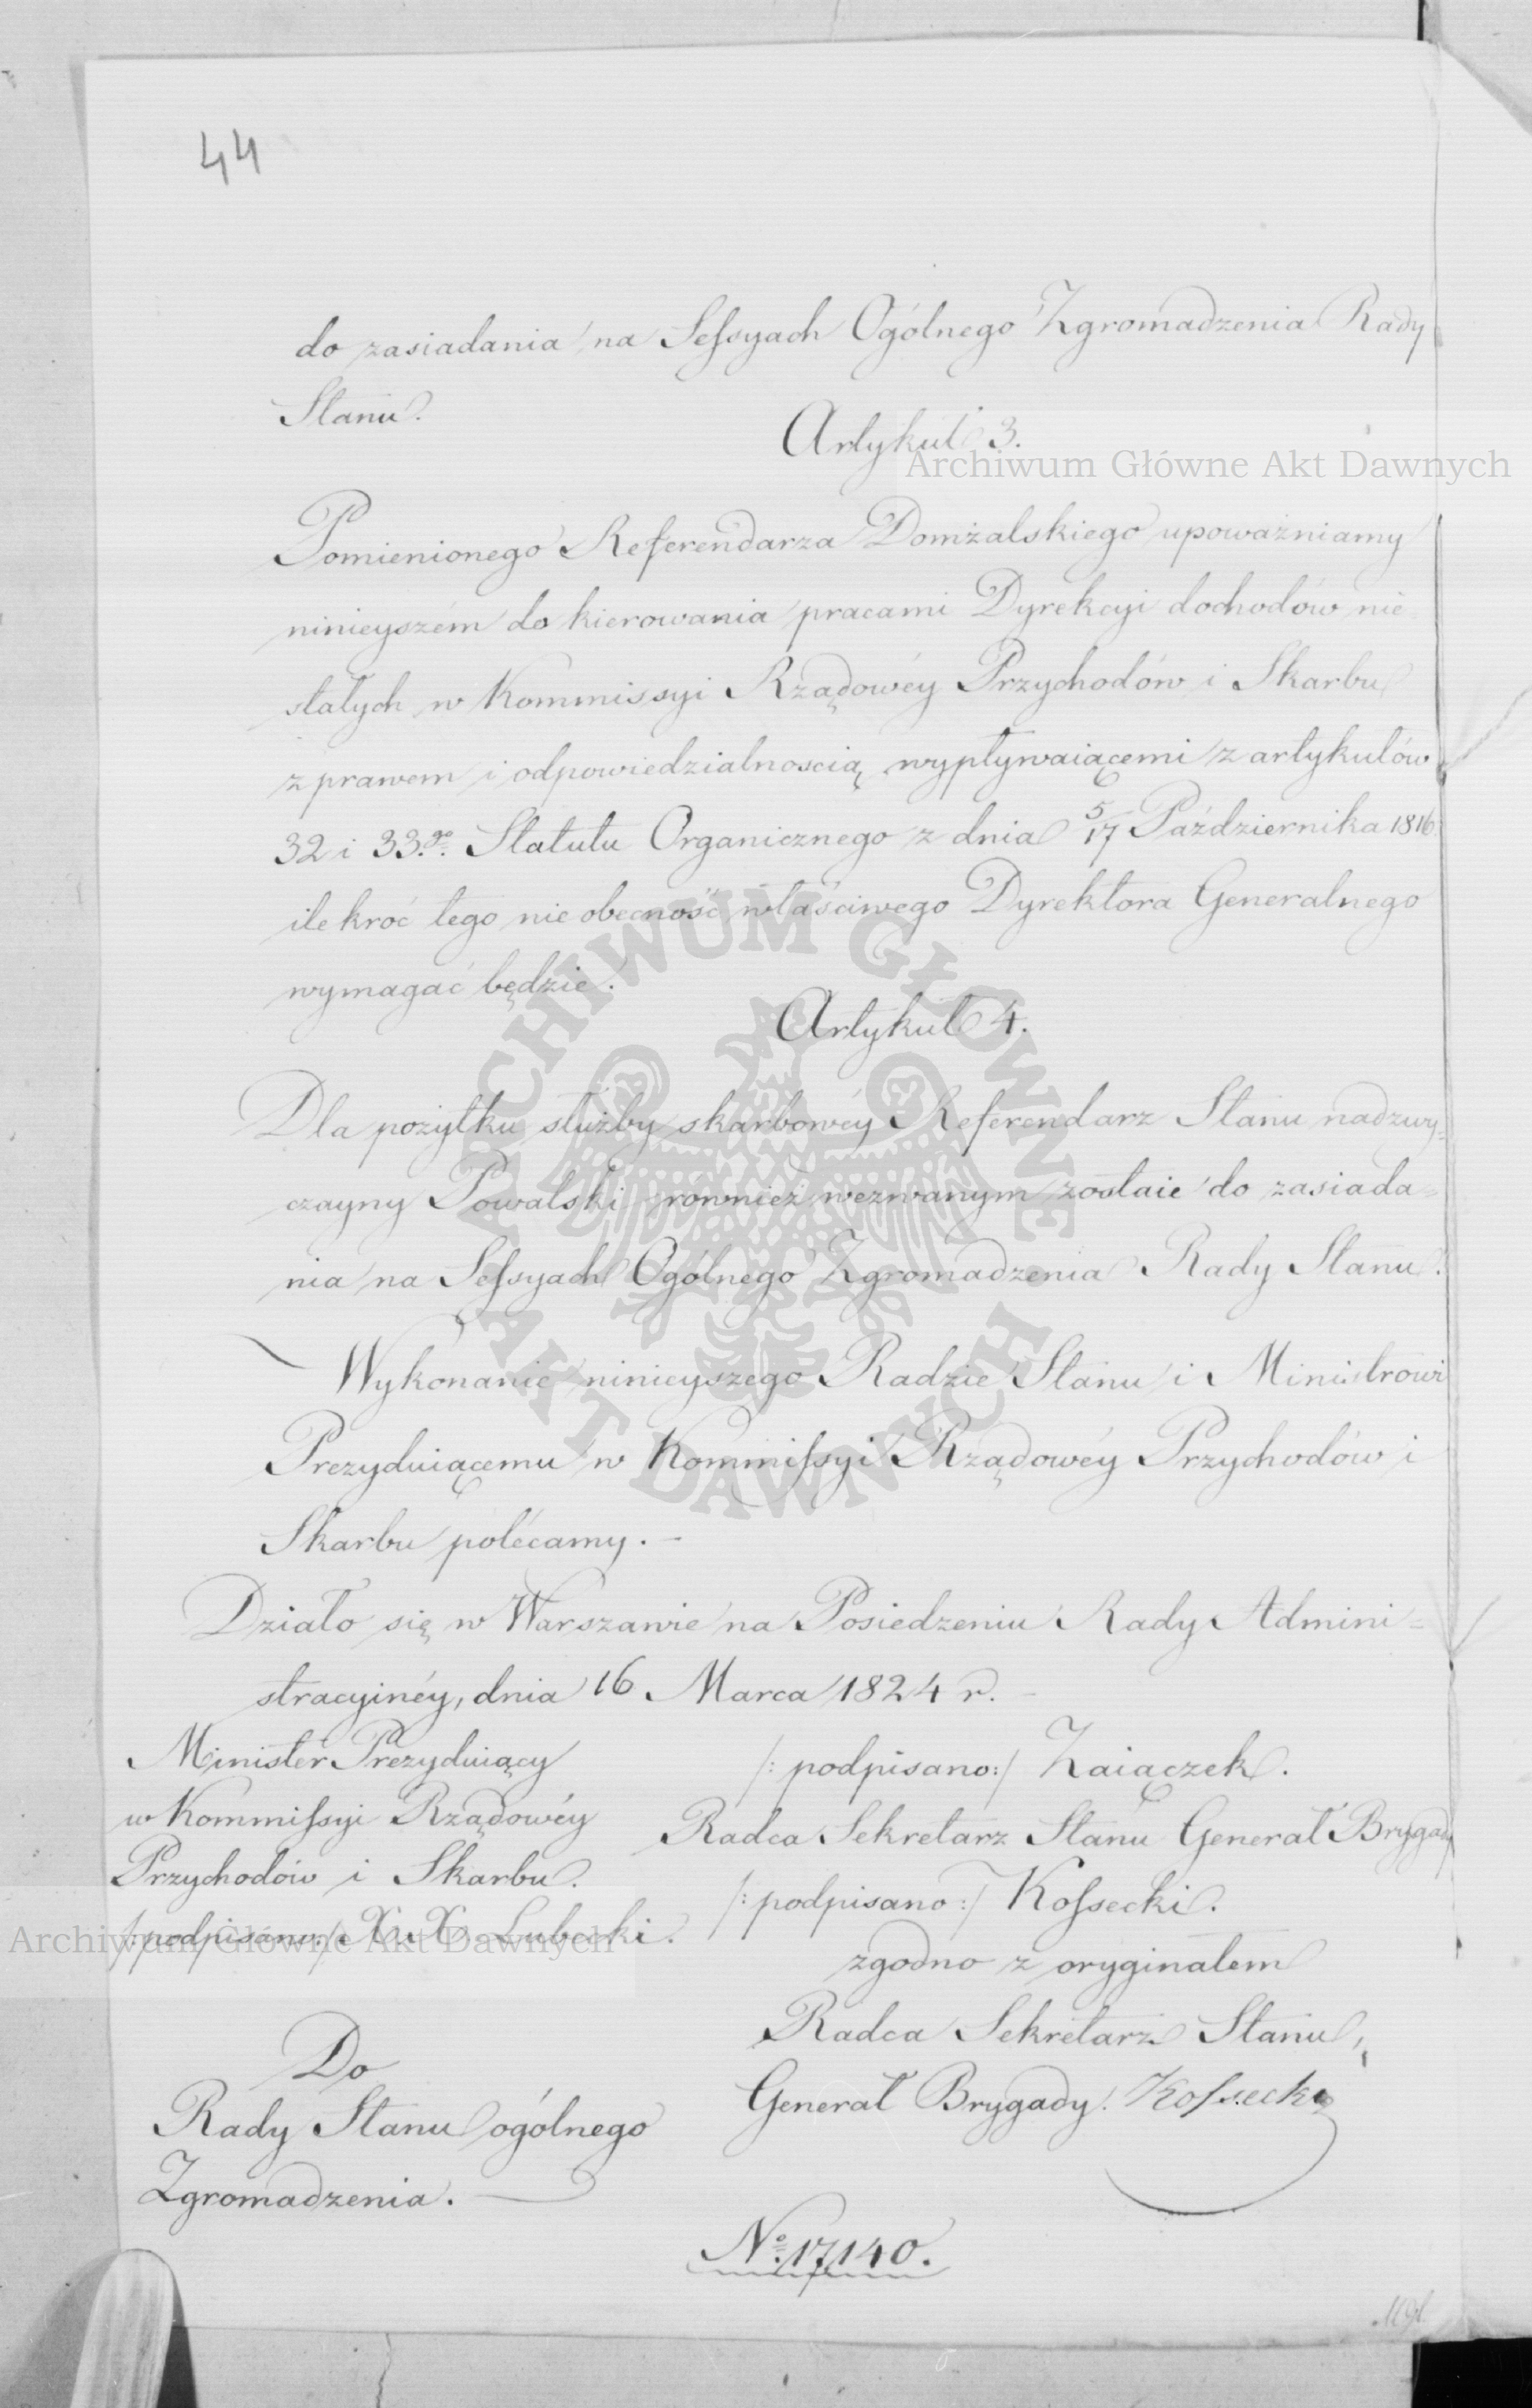 44
do zasiadania na Sefsyach Ogólnego Zgromadzenia Rady
Stanu.
Artykuł 3.
Archiwum Główne Akt Dawnych
Pomienionego Referendarza Domżalskiego upoważniamy
ninieyszém do kierowania pracami Dyrekcyi dochodów nie
stałych w Kommissyi Rządowéy Przychodów i Skarbu
z prawem i odpowiedzialnoscią wypływaiącemi z artykułów
32 i 33.go Statutu Organicznego z dnia 5/17 Października 1816
ile kroć tego nie obecność właściwego Dyrektora Generalnego
wymagać będzie.
Artykuł 4.
Dla pożytku służby skarbowéy Referendarz Stanu nadzwy=
czayny Powalski również wezwanym zostaie do zasiada=
nia na Sefsyach Ogólnego Zgromadzenia Rady Stanu.
Wykonanie ninieyszego Radzie Stanu i Ministrowi
Prezyduiącemu w Kommifsyi Rządowéy Przychodów i
Skarbu polécamy. -
Działo się w Warszawie na Posiedzeniu Rady Admini=
stracyinéy, dnia 16 Marca 1824 r.
Minister Prezyduiący
w Kommifsyi Rządowéy
Przychodów i Skarbu.
/:podpisano:/ X. X. Lubecki.
Archiwum Główne Akt Dawnych
/: podpisano:/ Zaiączek.
Radca Sekretarz Stanu Generał Brygady
/: podpisano :/ Kofsecki.
zgodno z oryginałem
Radca Sekretarz Stanu,
Generał Brygady. Kofsecki
Do
Rady Stanu ogólnego
Zgromadzenia.
No. 17140.
ARCHIWUM GŁÓWNE AKT DAWNYCH